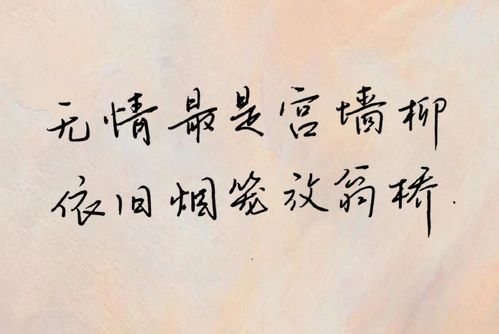 无情最是宫墙柳
依旧烟笼放翁桥.